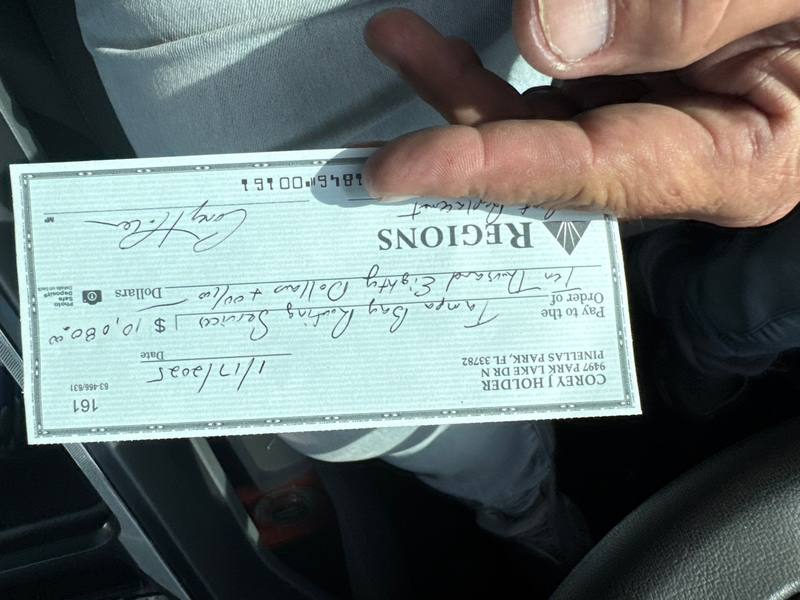 COREY J HOLDER
9497 PARK LAKE DR N
PINELLAS PARK, FL 33782
161
63-466/631
1/17/2025
Date
Pay to the
Order of
Tampa Bay Roofing Services
$ 10,080.00
Ten Thousand Eighty Dollars + 00/100
Dollars
Photo
Safe
Deposit®
Details on back
REGIONS
MP
1846⑈00161